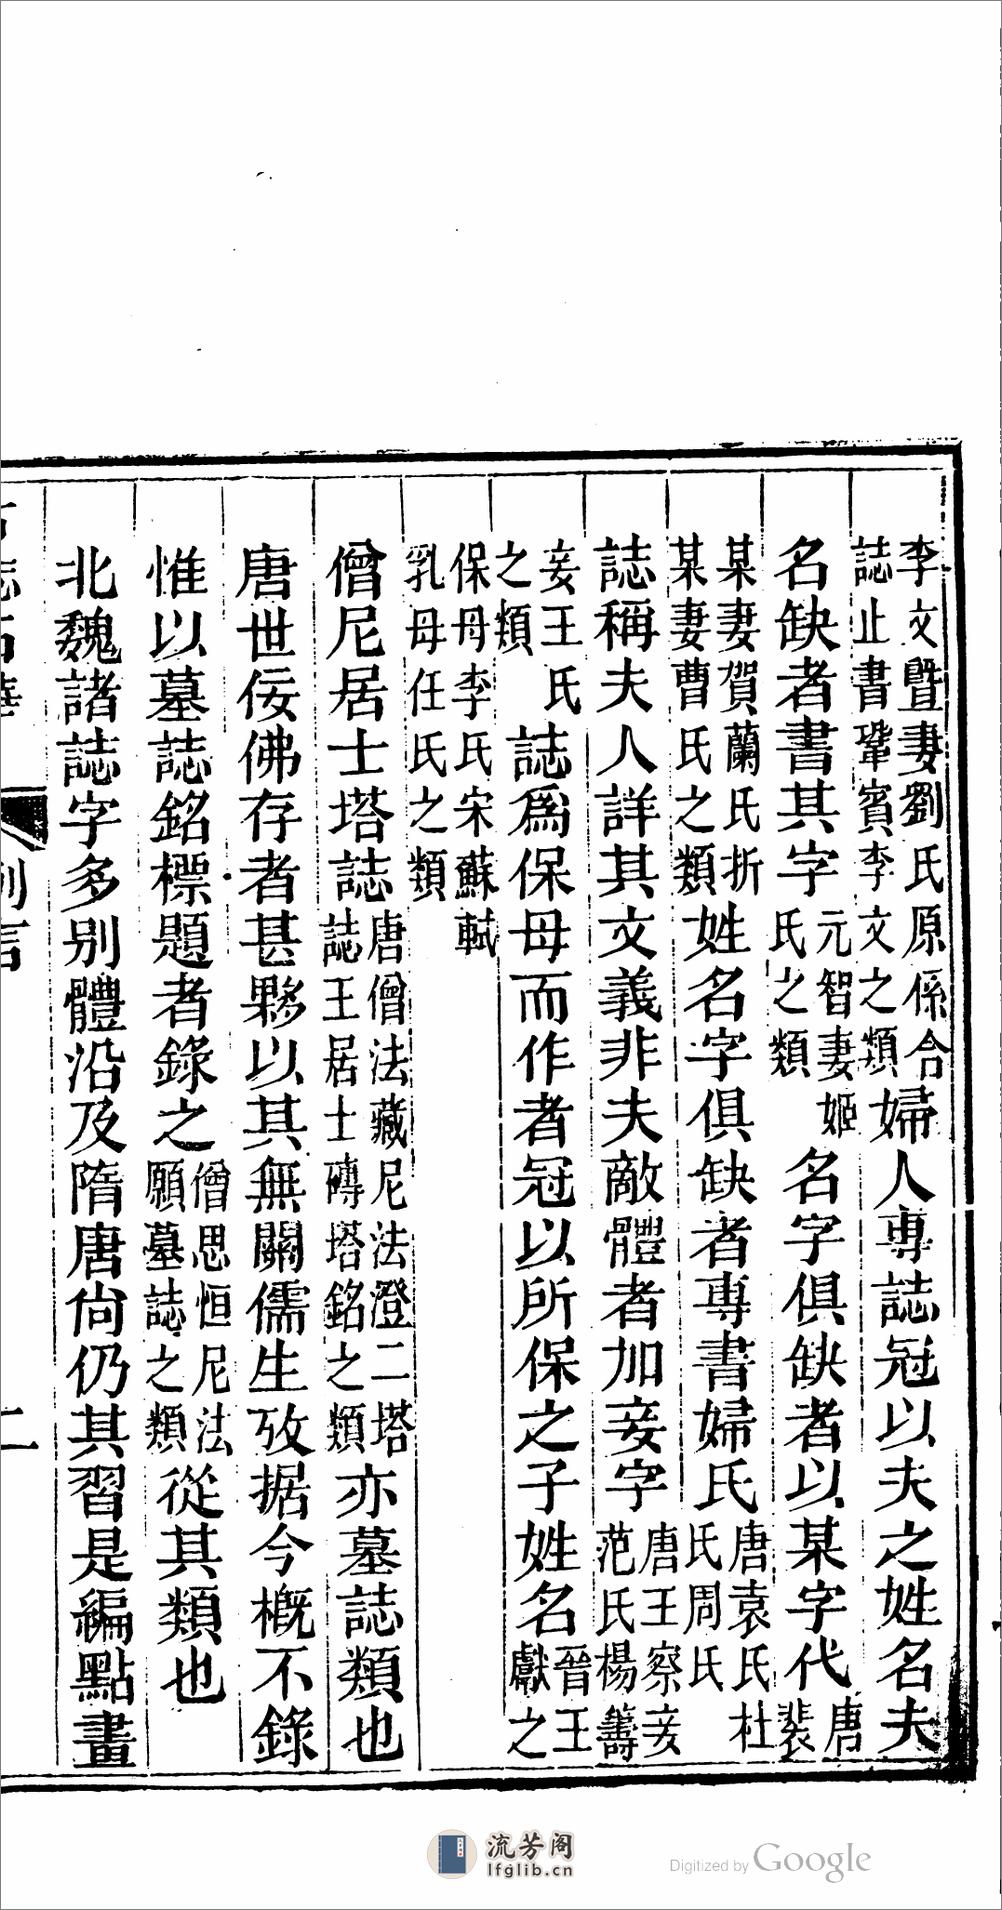 李文暨妻劉氏原係合誌止書鞏賓李文之類婦人專誌冠以夫之姓名夫
名缺者書其字元智妻姬氏之類名字俱缺者以某字代唐裴
某妻賀蘭氏折某妻曹氏之類姓名字俱缺者專書婦氏唐袁氏杜氏周氏
誌稱夫人詳其文義非夫敵體者加妾字唐王察妾范氏楊籌
妾王氏之類誌爲保母而作者冠以所保之子姓名晉王獻之
保母李氏宋蘇軾乳母任氏之類
僧尼居士塔誌唐僧法藏尼法澄二塔誌王居士磚塔銘之類亦墓誌類也
唐世佞佛存者甚夥以其無關儒生攷据今概不錄
惟以墓誌銘標題者錄之僧思恒尼法願墓誌之類從其類也
北魏諸誌字多別體沿及隋唐尚仍其習是編點畫
二
流芳阁
lfglib.cn
Digitized by Google